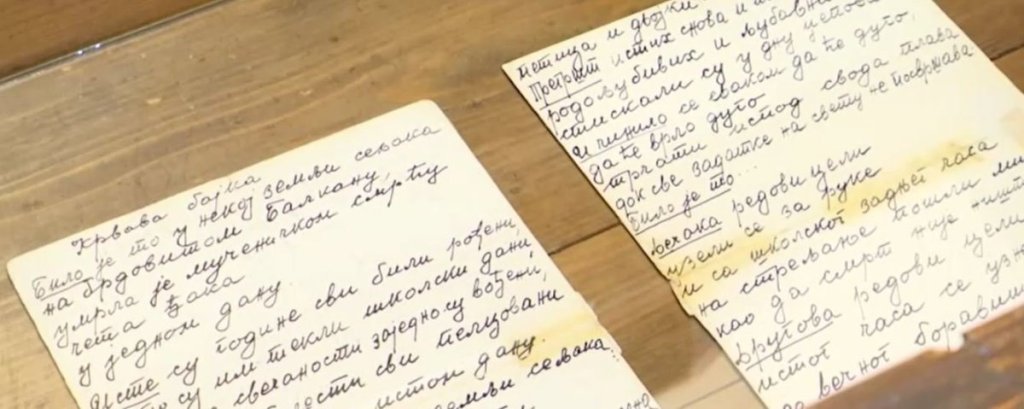 Крвава бајка
Било је то у некој земљи сељака
на брдовитом Балкану,
умрла је мученичком смрћу
чета ђака
у једном дану.
Исте су године сви били рођени,
су им текли школски дани
свечаности заједно су вођени,
сви пелцовани
истом дану.
земљи сељака
петица и двојки
Прегршт истих снова и
родољубивих и љубавн
стискали су у дну
И чинило се сваком да ће дуго,
да ће врло дуго
трчати испод свода плава
док све задатке на свету не посвршава
Било је то...
Дечака редови цели
узели се за руке
и са школског задњег часа
на стрељање пошли
као да смрт није ништ
Другова редови цели
истог часа се узн
до вечног борави